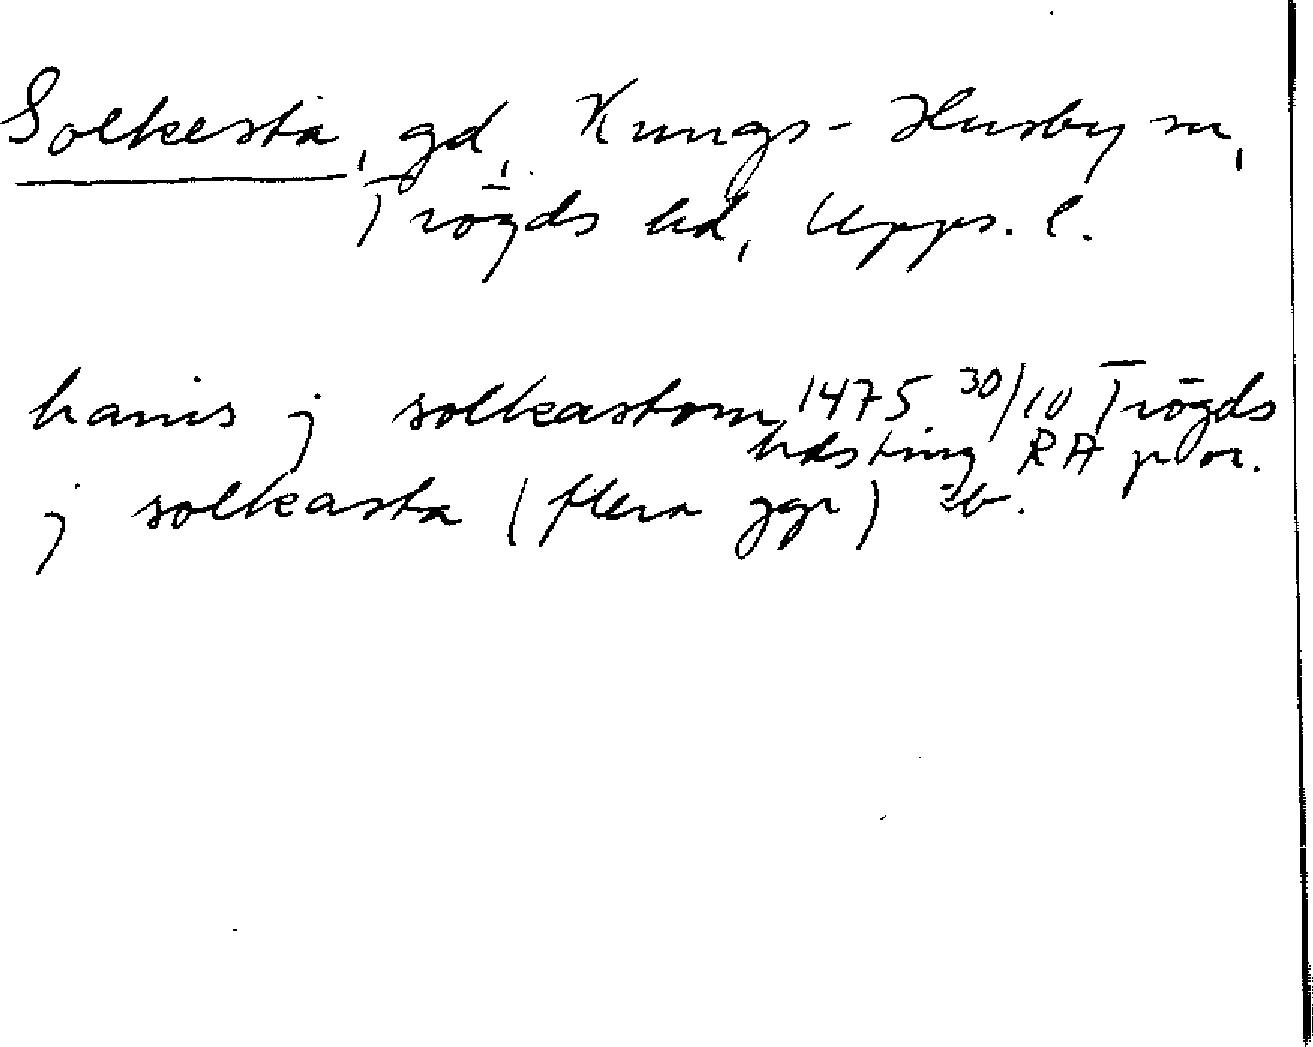 Solkesta, gd, Kungs-Husby sn,
Trögds hd, Upps. l.
hanis j solkastom 1475 30/10 Trögds
hdsting RA p or.
j solkasta (flera ggr) ib.